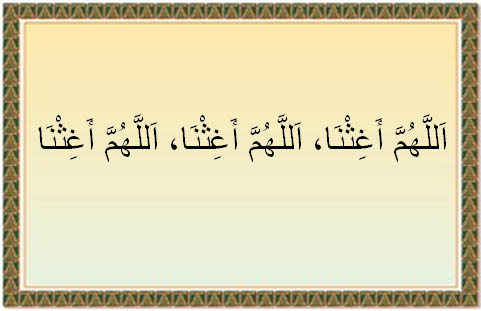 اَللَّهُمَّ أَغِثْنَا، اَللَّهُمَّ أَغِثْنَا، اَللَّهُمَّ أَغِثْنَا